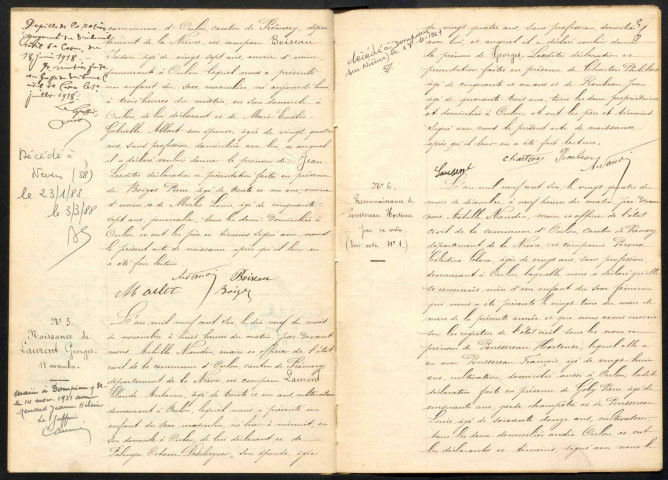 commune d'Oulon, canton de Prémery, dépar
tement de la Nièvre, est comparu Boiseau
âgé de vingt sept ans,
demeurant à Oulon, lequel nous a présenté
un enfant du sexe masculin, né aujourd'hui,
à trois heures du matin, en son domicile à
Oulon, de lui déclarant et de Marie Emélie
Gabrielle Allart son épouse, âgée de vingt quatre
ans, sans profession, domiciliée avec lui, et auquel
il a déclaré vouloir donner le prénom de Jean
Lesdites déclaration et présentation faites en présence
de Boizet Pierre âgé de trente et un ans,
et de Louis âgé de cinquante
sept ans, journalier, tous les deux domiciliés à
Oulon, et ont les père et témoins signé avec nous
le présent acte de naissance après qu'il leur en
a été fait lecture.
Nandou Boiseau
Boizet
Décédé à
Nevers (58)
le 23/1/88
le 3/3/88
N° 5.
Naissance de
Laurent Georges.
11 novembre.
Marié à Dompierre
le 10 nov. 1934 avec
L'an mil neuf cent six, le dix neuf du mois
de novembre à huit heures du matin, par devant
nous Achille Nandou, maire et officier de l'état
civil de la commune d'Oulon, canton de Prémery
département de la Nièvre, est comparu Laurent
Claude âgé de trente et un ans, cultivateur
demeurant à Oulon, lequel nous a présenté un
enfant du sexe masculin, né hier à minuit, en
son domicile à Oulon, de lui déclarant et de
son épouse, âgée
de vingt quatre ans, sans profession, domiciliée
avec lui, et auquel il a déclaré vouloir donner
le prénom de Georges. Lesdites déclaration et
présentation faites en présence de Charton Philibert
âgé de cinquante et un ans et de Rouleau Jean
âgé de quarante trois ans, tous les deux propriétaires
et domiciliés à Oulon, et ont les père et témoins
signé avec nous le présent acte de naissance
après qu'il leur en a été fait lecture.
Charton Rouleau
Laurent Nandou
N° 6.
Reconnaissance de
Poussereau Hortense
par sa mère
(Voir acte N° 1.)
L'an mil neuf cent six, le vingt quatre du
mois de décembre, à neuf heures du matin par devant
nous Achille Nandou, maire et officier de l'état
civil de la commune d'Oulon, canton de Prémery
département de la Nièvre, est comparue
âgée de vingt ans, sans profession,
demeurant à Oulon, laquelle nous a déclaré qu'elle
se reconnaît mère d'un enfant du sexe féminin
qui nous a été présenté le vingt trois du mois de
mars de la présente année et que nous avons inscrit
sur les registres de l'état civil sous les nom et
prénom de Poussereau Hortense, lequel elle a
eu avec Poussereau François, âgé de vingt huit
ans, cultivateur, domicilié aussi à Oulon. Ladite
déclaration faite en présence de Joly Pierre âgé de
cinquante ans, garde champêtre et de Poussereau
Louis âgé de soixante douze ans, cultivateur,
tous les deux domiciliés audit Oulon et ont
les déclarante et témoins, signé avec nous le